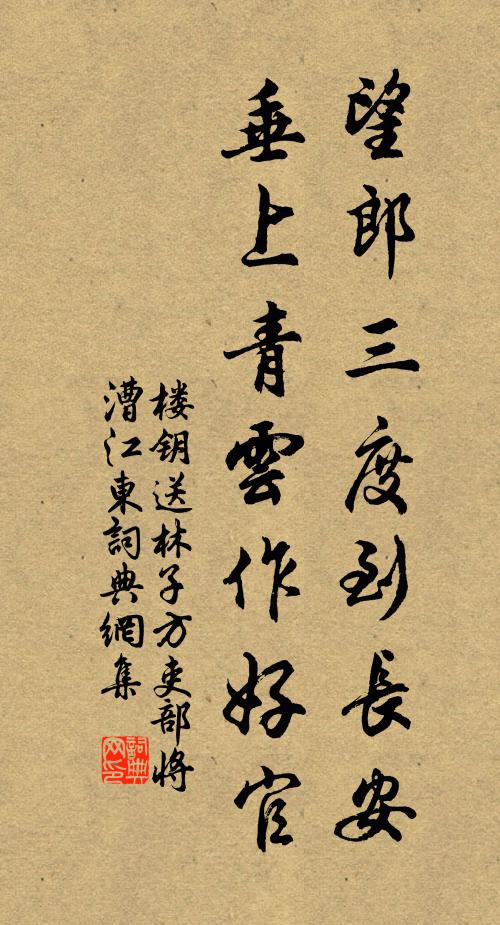 望郎三度到長安
垂上青雲作好官
楼钥送林子方吏部將
漕江東詞典網集
詞典网印